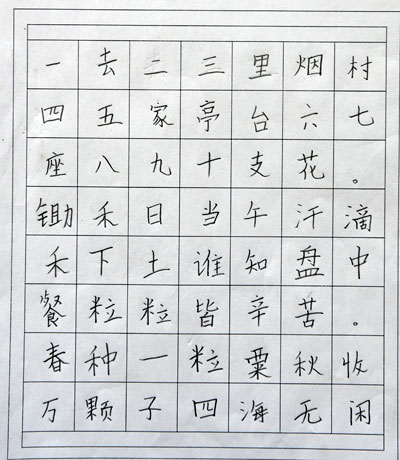 一去二三里烟村
四五家亭台六七
座八九十支花。
锄禾日当午汗滴
禾下土谁知盘中
餐粒粒皆辛苦。
春种一粒粟秋收
万颗子四海无闲